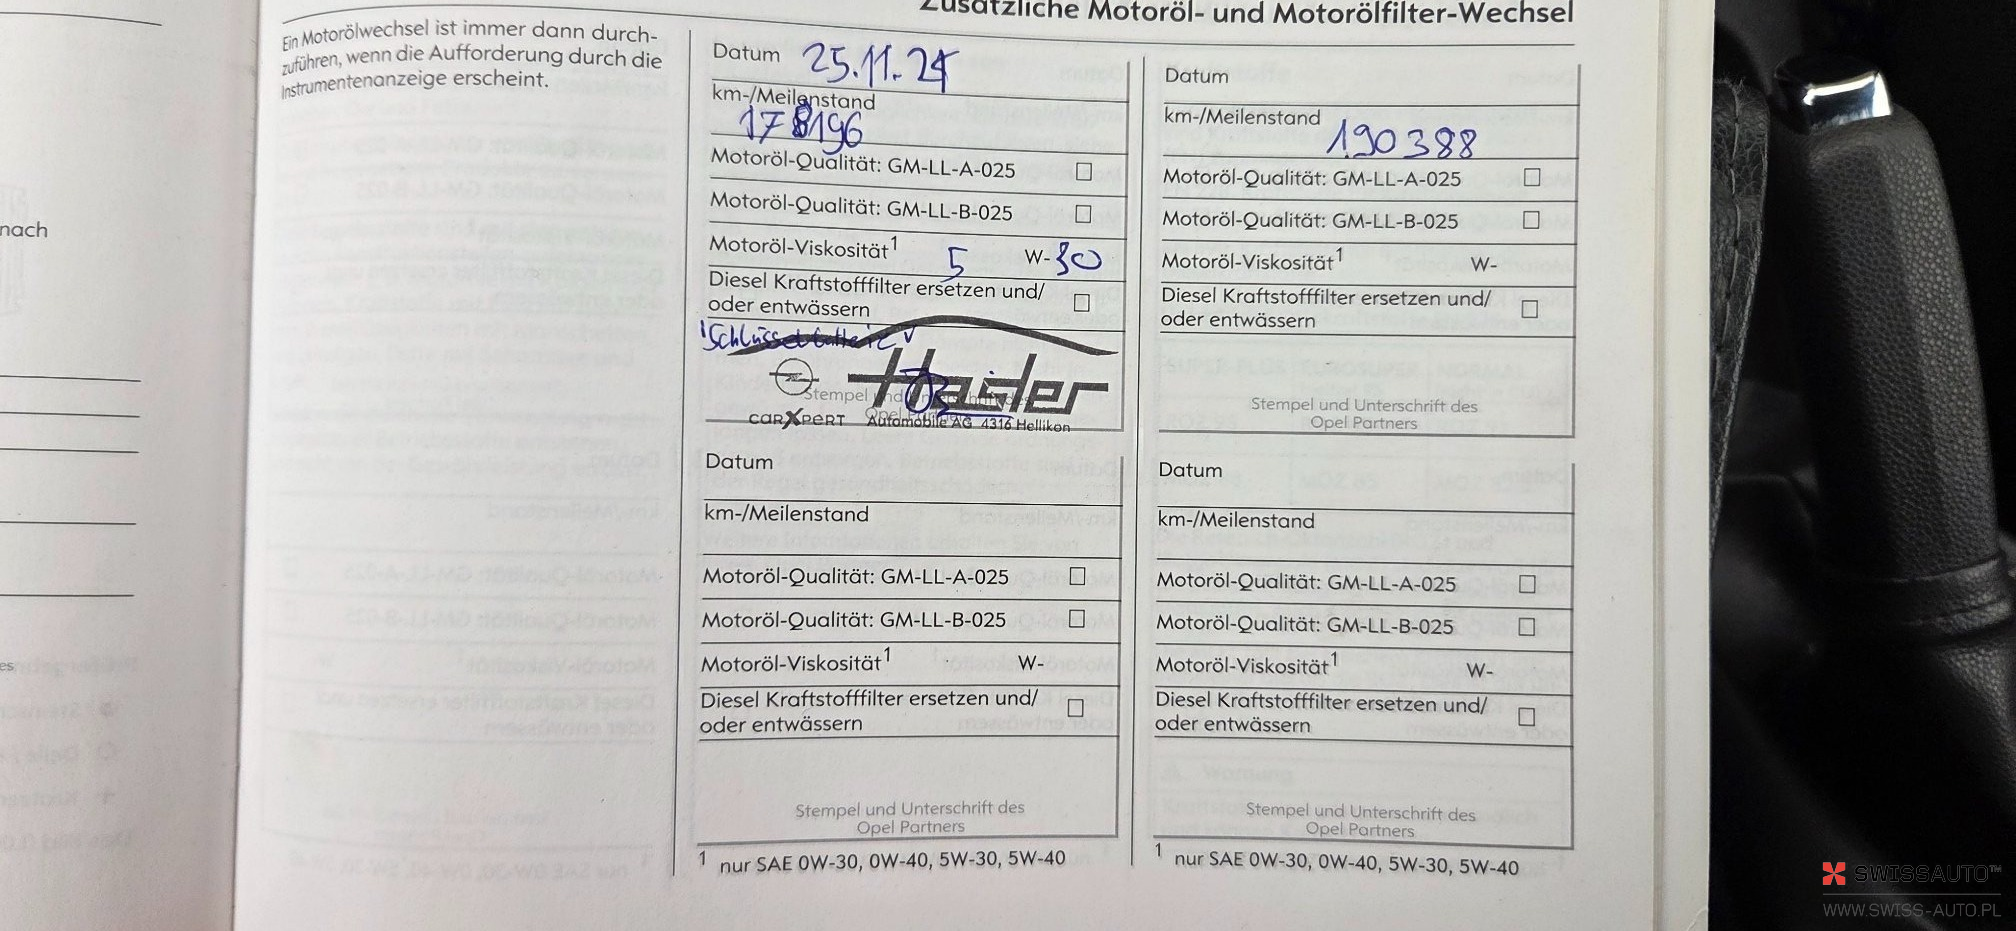 Zusätzliche Motoröl- und Motorölfilter-Wechsel
Ein Motorölwechsel ist immer dann durch-
zuführen, wenn die Aufforderung durch die
Instrumentenanzeige erscheint.
nach
es
Datum 25.11.24
km-/Meilenstand
178196
Motoröl-Qualität: GM-LL-A-025
Motoröl-Qualität: GM-LL-B-025
Motoröl-Viskosität1 5 W-30
Diesel Kraftstofffilter ersetzen und/
oder entwässern
Schlüsselbatterie
Haider
Stempel und Unterschrift des
Opel Partners
carXpert Automobile AG 4316 Hellikon
Datum
km-/Meilenstand 190388
Motoröl-Qualität: GM-LL-A-025
Motoröl-Qualität: GM-LL-B-025
Motoröl-Viskosität1 W-
Diesel Kraftstofffilter ersetzen und/
oder entwässern
Stempel und Unterschrift des
Opel Partners
Datum
km-/Meilenstand
Motoröl-Qualität: GM-LL-A-025
Motoröl-Qualität: GM-LL-B-025
Motoröl-Viskosität1 W-
Diesel Kraftstofffilter ersetzen und/
oder entwässern
Stempel und Unterschrift des
Opel Partners
1 nur SAE 0W-30, 0W-40, 5W-30, 5W-40
Datum
km-/Meilenstand
Motoröl-Qualität: GM-LL-A-025
Motoröl-Qualität: GM-LL-B-025
Motoröl-Viskosität1 W-
Diesel Kraftstofffilter ersetzen und/
oder entwässern
Stempel und Unterschrift des
Opel Partners
1 nur SAE 0W-30, 0W-40, 5W-30, 5W-40
SWISSAUTO™
WWW.SWISS-AUTO.PL